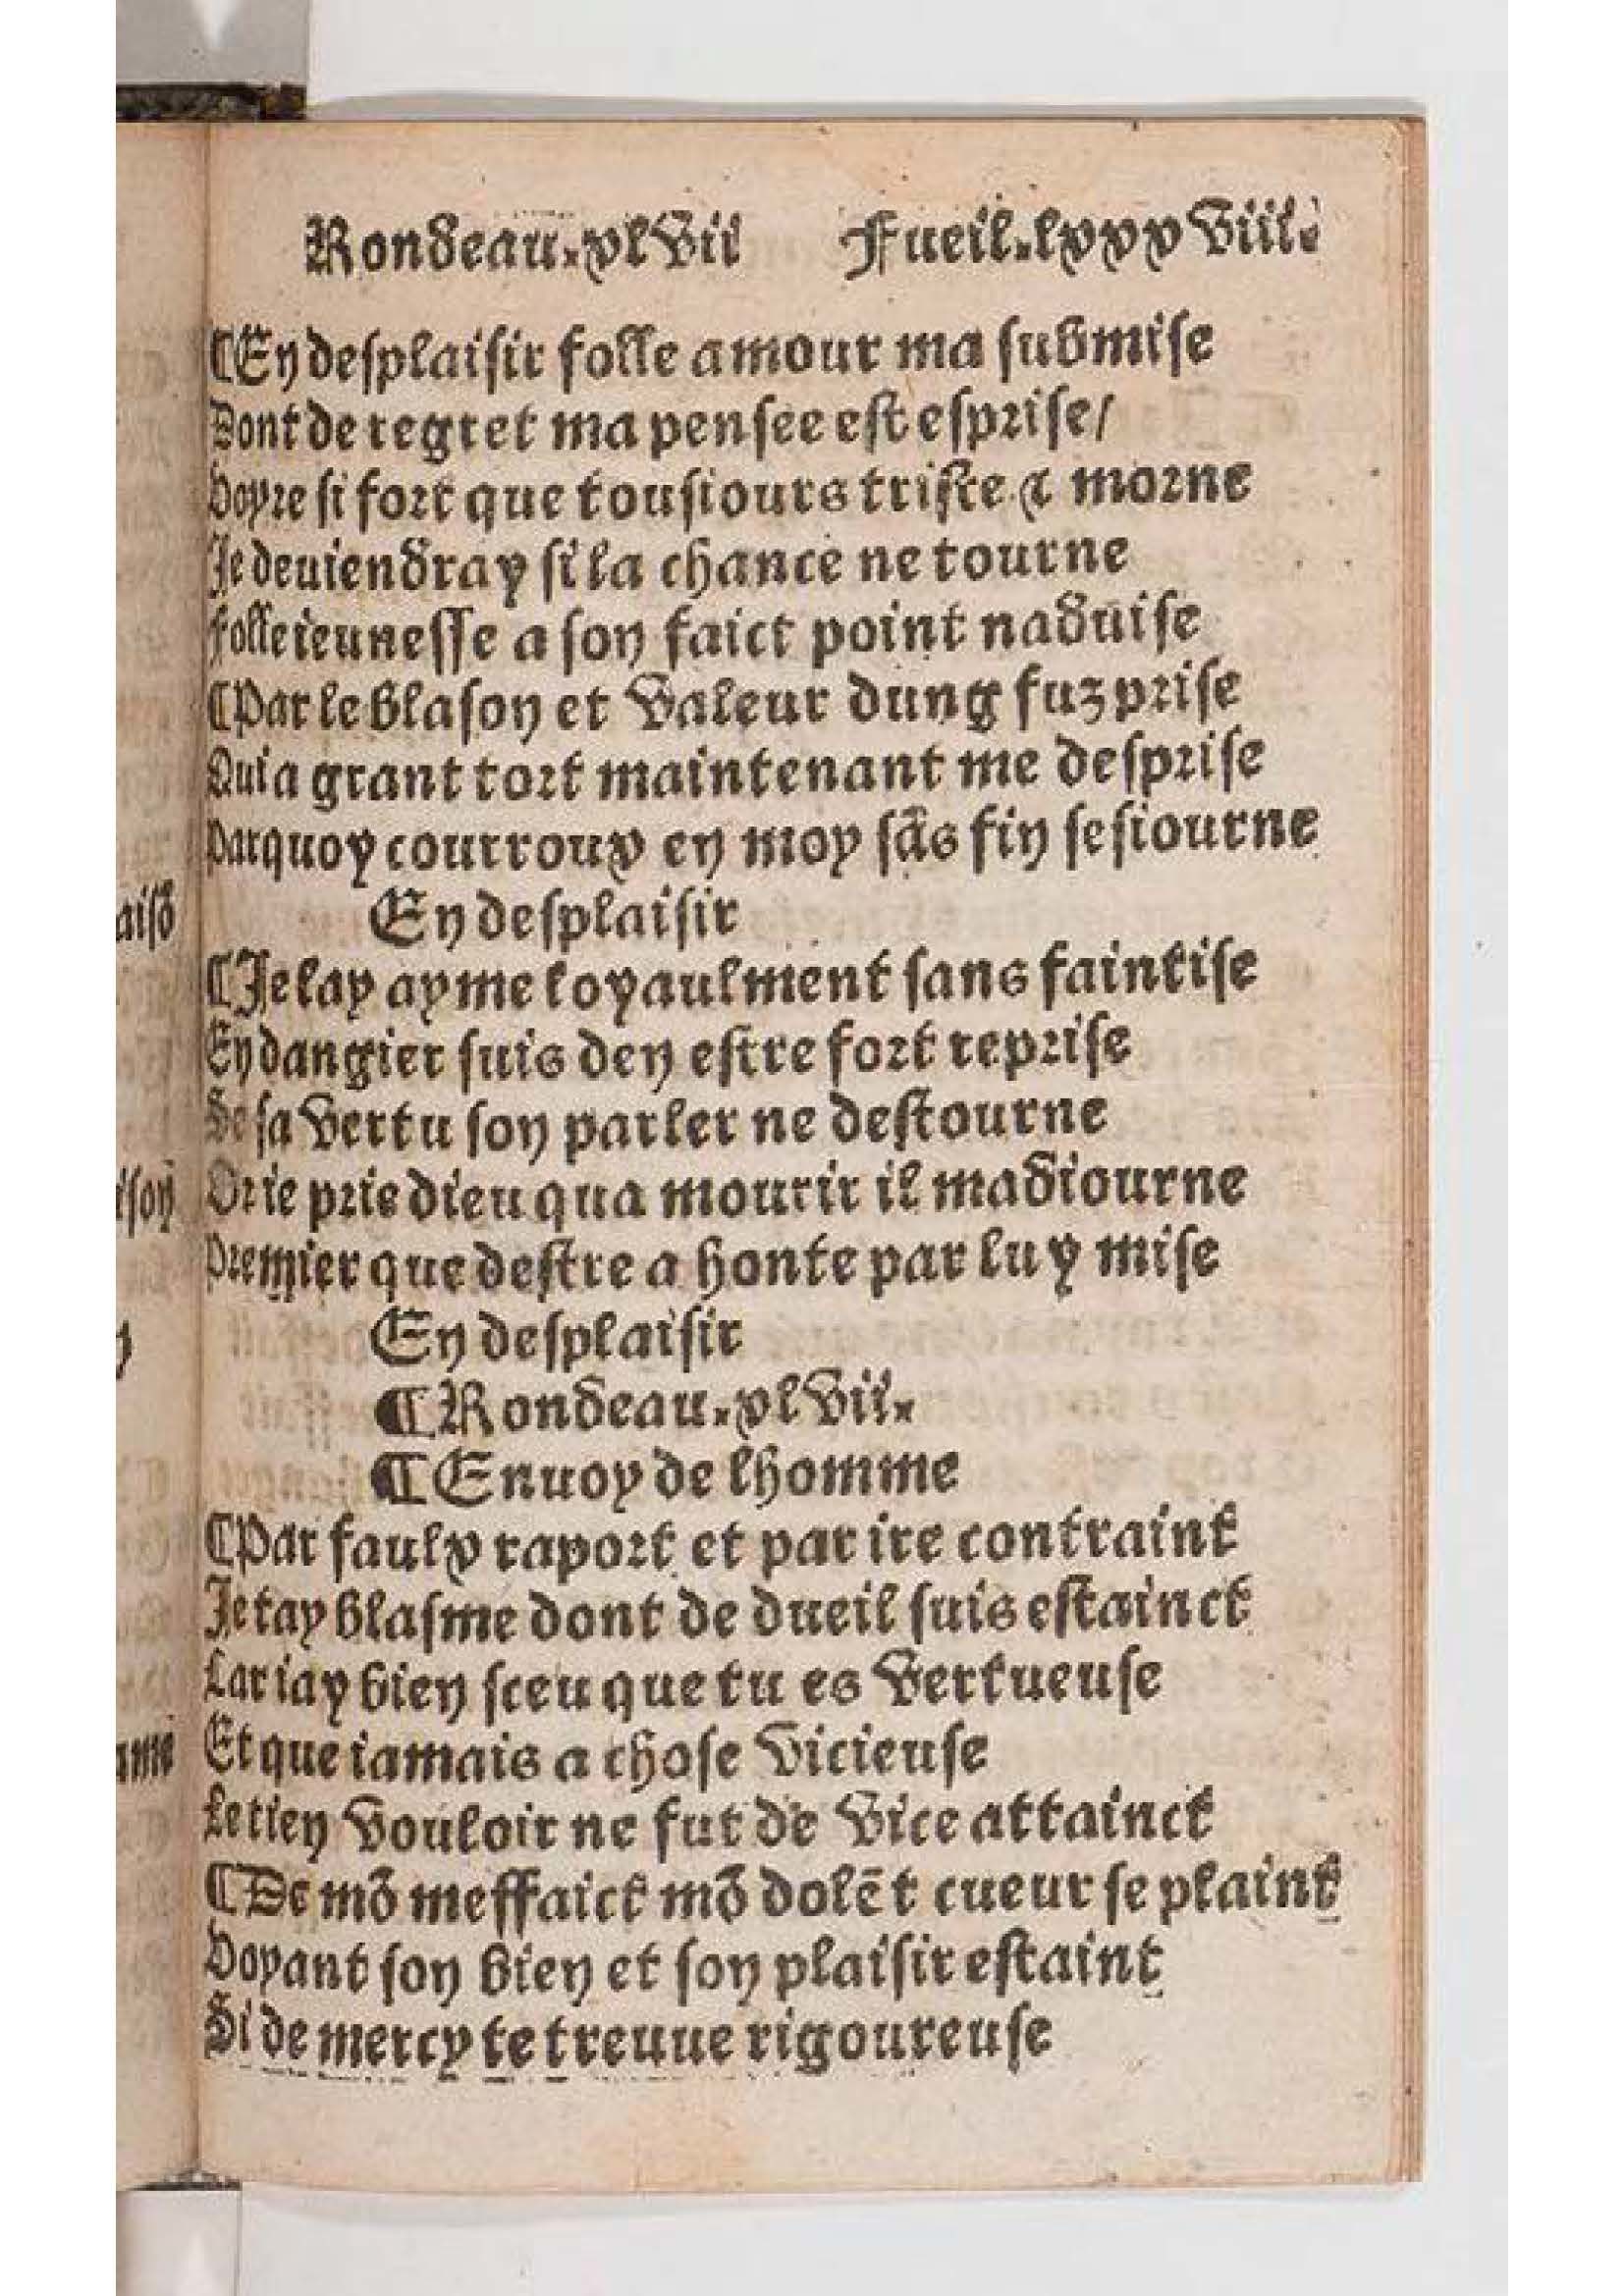 Rondeau.xlvii Fueil.lxxxviii.
¶En desplaisir folle amour ma submise
Dont de regret ma pensee est esprise/
Voyre si fort que tousiours triste & morne
Je deuiendray si la chance ne tourne
Folle ieunesse a son faict point naduise
¶Par le blason et valeur dung fuz prise
Qui a grant tort maintenant me desprise
Parquoy courroux en moy sãs fin se siourne
En desplaisir
aisõ
¶Je lay ayme loyaulment sans faintise
En dangier suis den estre fort reprise
Se sa vertu son parler ne destourne
Or ie prie dieu qua mourir il madiourne
ison
Premier que destre a honte par luy mise
En desplaisir
¶Rondeau.xlvii.
¶Enuoy de lhomme
¶Par faulx raport et par ire contraint
Je tay blasme dont de dueil suis estainct
Car iay bien sceu que tu es vertueuse
Et que iamais a chose vicieuse
ame
Le tien vouloir ne fut de vice attainct
¶De mõ meffaict mõ dolẽt cueur se plaint
Voyant son bien et son plaisir estaint
Si de mercy te treuue rigoureuse